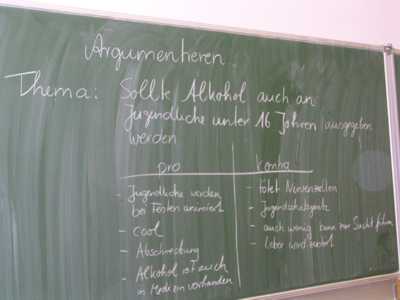 Argumentieren
Thema: Sollte Alkohol auch an
Jugendliche unter 16 Jahren ausgegeben
werden
pro
- Jugendliche werden
bei Festen animiert
- cool
- Abschreckung
- Alkohol ist auch
in Medien vorhanden
Kontra
- tötet Nervenzellen
- Jugendschutzgesetz
- auch wenig kann zur Sucht führen
- Leber wird zerstört